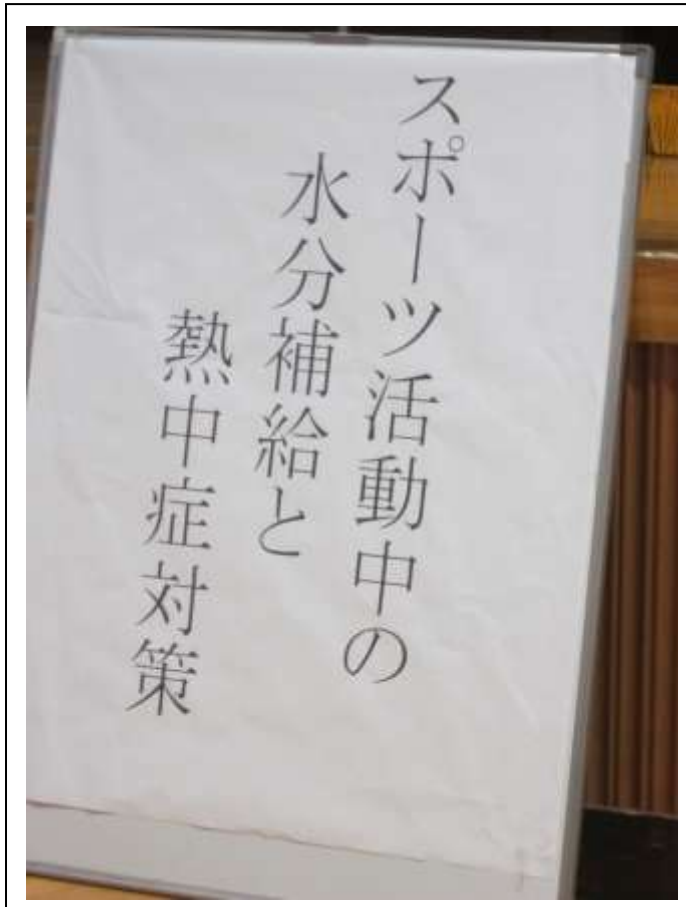 スポーツ活動中の
水分補給と
熱中症対策